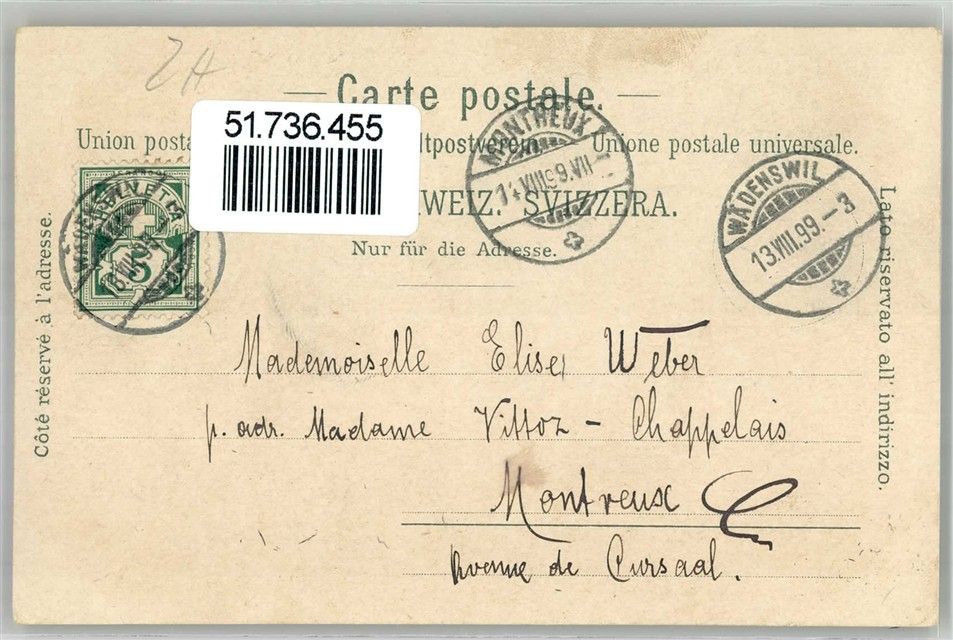 ZH
Carte postale.
51.736.455
Union posta ltpostverein Unione postale universale.
WEIZ. SVIZZERA.
Nur für die Adresse.
Côté réservé à l'adresse.
Lato riservato all' indirizzo.
HELVETIA
5
MONTREUX
14.VIII.99.VII
WÄDENSWIL
13.VIII.99.-3
Mademoiselle Elise Weber
p. adr. Madame Vittoz - Chappelais
Montreux
Avenue de Cursaal.